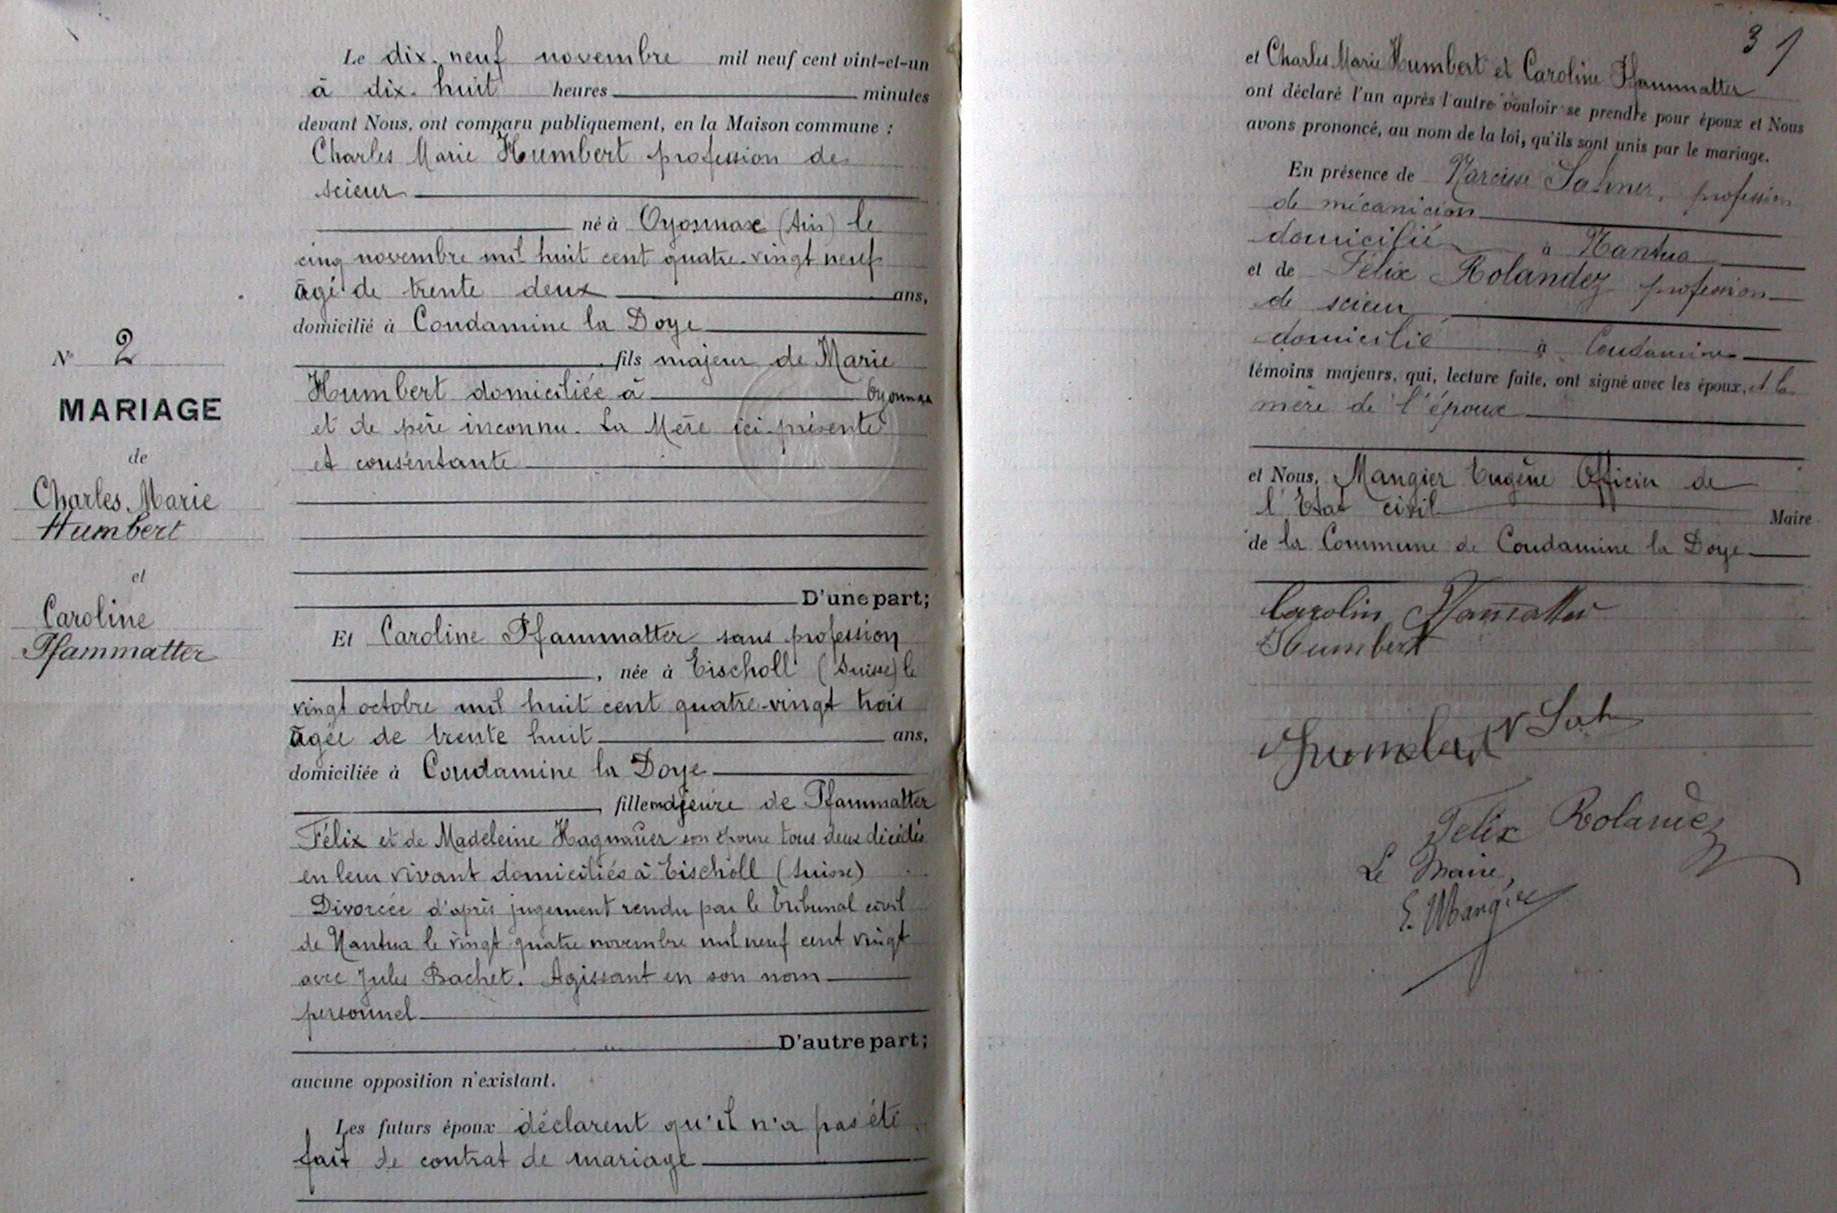 Nº 2
MARIAGE
de
Charles Marie
Humbert
et
Caroline
Pfammatter
Le dix-neuf novembre mil neuf cent vint-et-un
à dix-huit heures minutes
devant Nous, ont comparu publiquement, en la Maison commune :
Charles Marie Humbert profession de
scieur
né à Oyonnax (Ain) le
cinq novembre mil huit cent quatre-vingt neuf
âgé de trente deux ans,
domicilié à Condamine la Doye
fils majeur de Marie
Humbert domiciliée à Oyonnax
et de père inconnu. La Mère ici présente
et consentante
D'une part;
Et Caroline Pfammatter sans profession
, née à Eischoll (Suisse) le
vingt octobre mil huit cent quatre-vingt trois
âgée de trente huit ans,
domiciliée à Condamine la Doye
, fille majeure de Pfammatter
Félix et de Madeleine Hagnauer son épouse tous deux décédés
en leur vivant domiciliés à Eischoll (Suisse)
Divorcée d'après jugement rendu par le tribunal civil
de Nantua le vingt-quatre novembre mil neuf cent vingt
avec Jules Bachet. Agissant en son nom
personnel
D'autre part;
aucune opposition n'existant.
Les futurs époux déclarent qu'il n'a pas été
fait de contrat de mariage
31
et Charles Marie Humbert et Caroline Pfammatter
ont déclaré l'un après l'autre vouloir se prendre pour époux et Nous
avons prononcé, au nom de la loi, qu'ils sont unis par le mariage.
En présence de Narcisse profession
de mécanicien
domicilié à Nantua
et de Félix Rolandez profession
de scieur
domicilié à Condamine
témoins majeurs, qui, lecture faite, ont signé avec les époux, et la
mère de l'époux
et Nous, Mangier Eugène Officier de
l'Etat civil Maire
de la Commune de Condamine la Doye
Carolin Pfammatter
Humbert
Humbert
Felix Rolandez
Le Maire,
E. Mangier